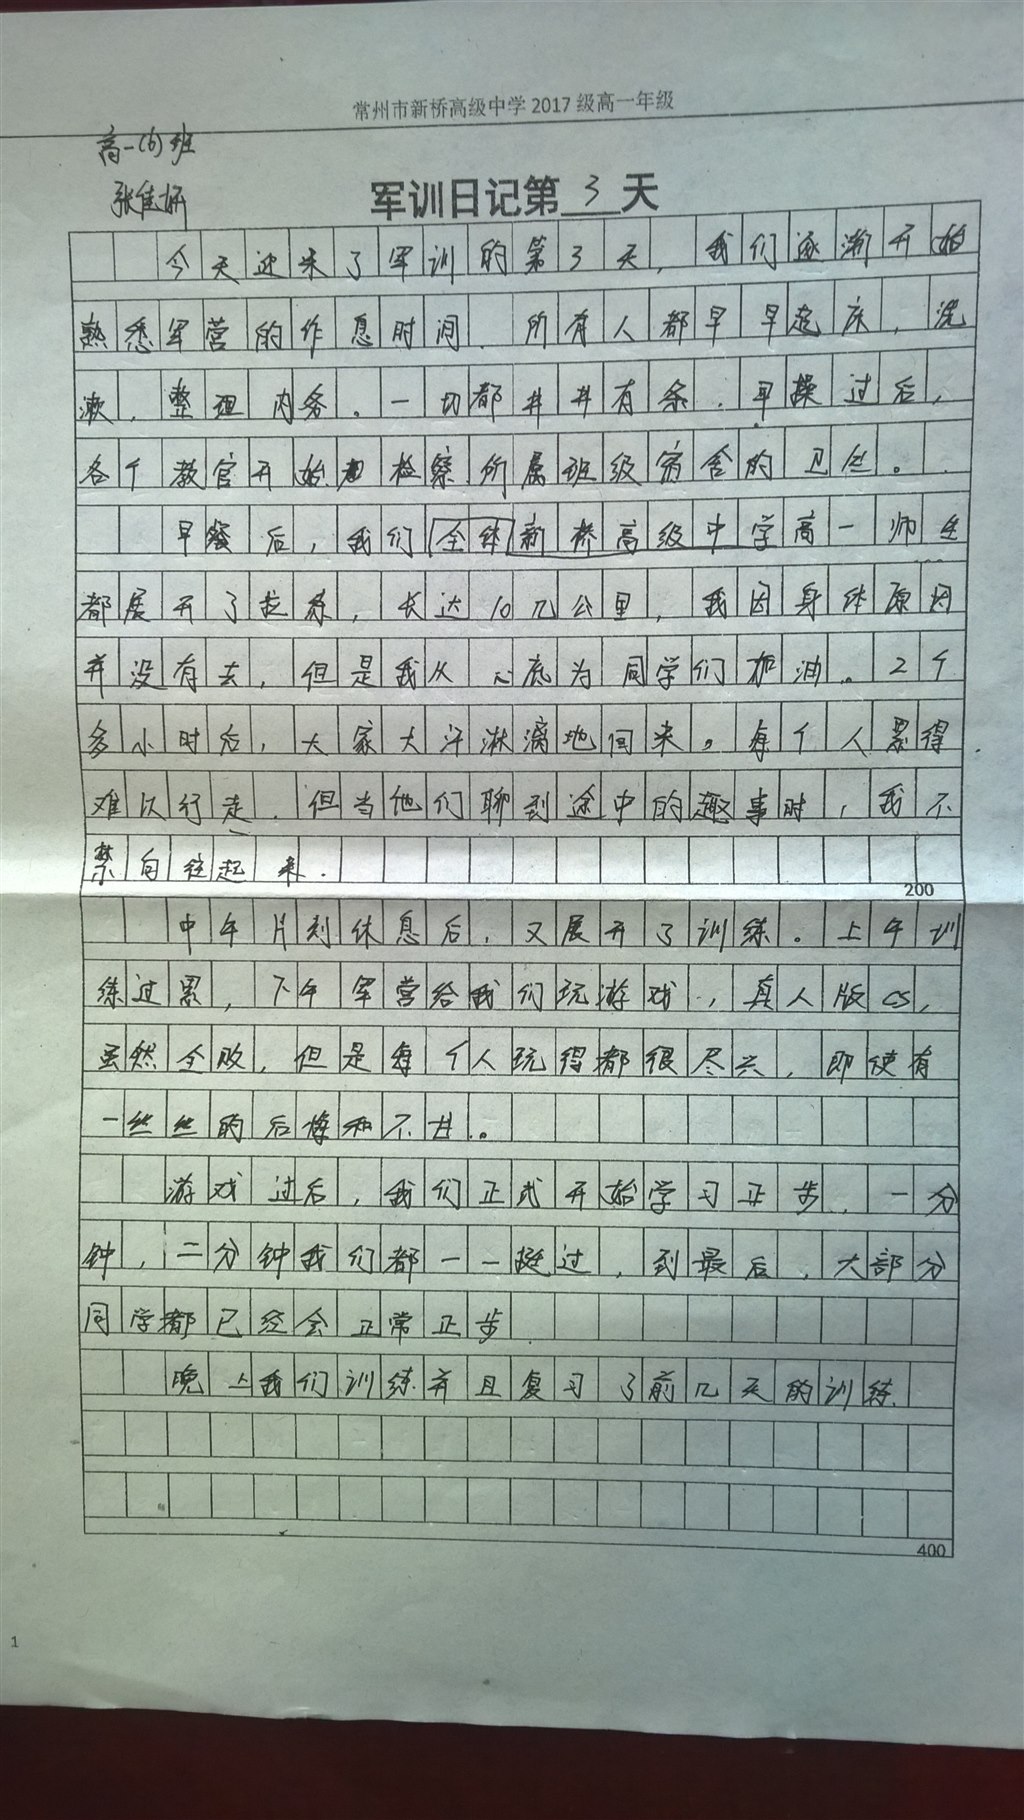 常州市新桥高级中学 2017 级高一年级
高一(6)班
张佳妍
军训日记第 3 天
今天迎来了军训的第3天，我们逐渐开始
熟悉军营的作息时间．所有人都早早起床，洗
漱，整理内务。一切都井井有条．早操过后，
各个教官开始检察所属班级宿舍的卫生。
早餐后，我们全体新桥高级中学高一师生
都展开了拉练，长达10几公里，我因身体原因
并没有去，但是我从心底为同学们加油。2个
多小时后，大家大汗淋漓地回来。每个人累得
难以行走．但当他们聊到途中的趣事时，我不
禁向往起来．
中午片刻休息后，又展开了训练。上午训
练过累，下午军营给我们玩游戏，真人版CS，
虽然全败，但是每个人玩得都很尽兴，即使有
一丝丝的后悔和不甘。
游戏过后，我们正式开始学习正步，一分
钟，二分钟我们都一一挺过，到最后，大部分
同学都已经会正常正步
晚上我们训练并且复习了前几天的训练．
200
400
1